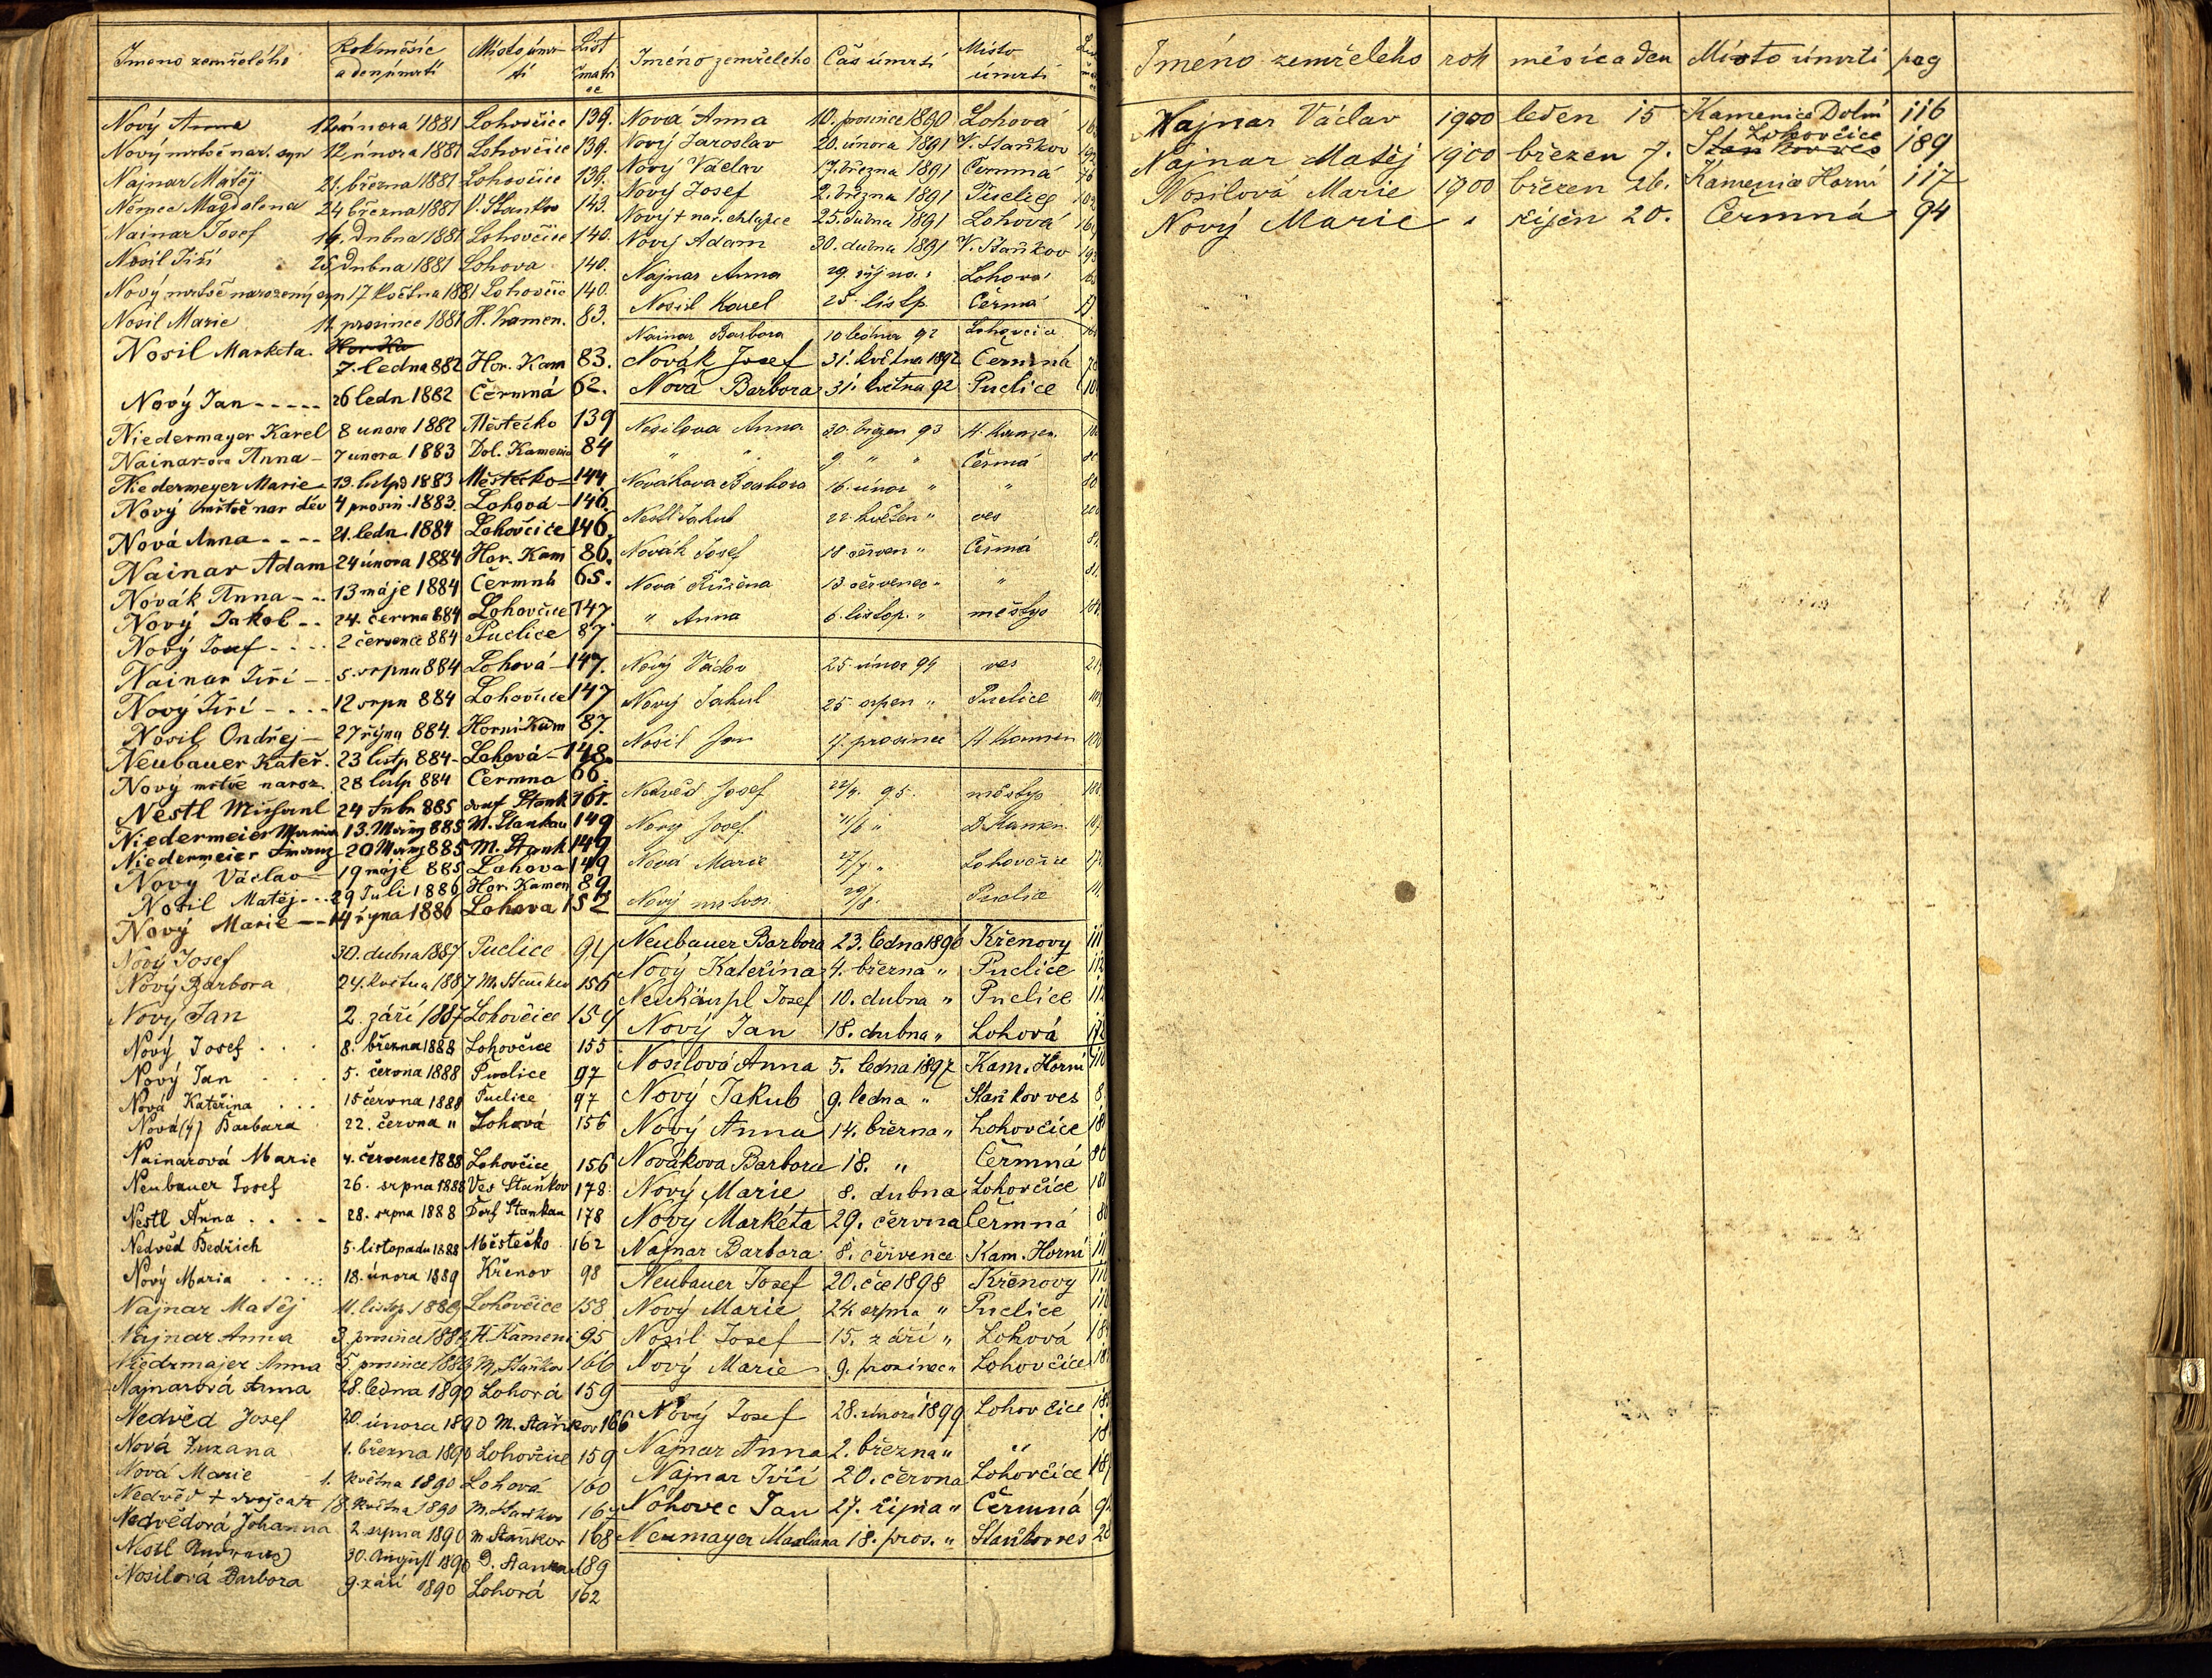 Jmeno zemřelého Rok měsíc a den úmrtí Místo úmrtí List matrice
Nový Anna 12 února 1881 Lohovčice 139.
Nový mrtvě nar. syn 12 února 1881 Lohovčice 139.
Najnar Matěj 21. března 1881 Lohovčice 139.
Němec Magdalena 24 března 1881 V. Staňkov 143.
Nainar Josef 14. dubna 1881 Lohovčice 140.
Nosil Jiří 25. dubna 1881 Lohova 140.
Nový mrtvě narozený syn 17 května 1881 Lohovčic 140.
Nosil Marie 11 prosince 1881 H. Kamen. 83.
Nosil Marketa. 7. ledna 882 Hor. Kam 83.
Nový Jan 26 ledn 1882 Čermná 62.
Niedermayer Karel 8 unora 1882 Městečko 139
Nainar-ova Anna 7 unora 1883 Dol. Kamenic 84
Niedermeyer Marie 13. listp 1883 Městečko 144.
Nový mrtvě nar děv 4 prosin. 1883. Lohová 146.
Nová Anna 21. ledn. 1884 Lohovčice 146.
Nainar Adam 24 února 1884 Hor. Kam 86.
Novák Anna 13 máje 1884 Čermná 65.
Nový Jakob 24. června 884 Lohovčice 147.
Nový Josef 2 července 884 Puclice 87
Nainar Jiří 5. srpna 884 Lohová 147.
Nový Jiří 12 srpn 884 Lohovčice 147
Nosil Ondřej 27 října 884. Horní Kam 87.
Neubauer Kateř. 23 listp 884 Lohová 148.
Nový mrtvě naroz. 28 listp 884 Čermna 66.
Nestl 24 885 Stank 161.
Niedermeier Maria 13. März 885 M. Stankau 149
Niedermeier Franz 20 März 885 M. Stank 149
Novy Václav 19 máje 885 Lohova 149
Nosil Matěj 29 Juli 1886 Hor. Kamen 89
Nový Marie 14 října 1886 Lohova 152
Nový Josef 30. dubna 1887 Puclice 94
Nový Barbora 24. května 1887 M. Staňkov 156
Nový Jan 2. září 1887 Lohovčice 154
Nový Josef 8. března 1888 Lohovčice 155
Nový Jan 5. června 1888 Puclice 97
Nová Kateřina 15 června 1888 Puclice 97
Nová(ý) Barbara 22. června " Lohová 156
Nainarová Marie 4. července 1888 Lohovčice 156
Neubauer Josef 26. srpna 1888 Ves Staňkov 178
Nestl Anna 28. srpna 1888 Dorf Stankau 178
Nedvěd Bedřich 5. listopadu 1888 Městečko 162
Nový Maria 18. února 1889 Křenov 98
Najnar Matěj 11. listp. 1889 Lohovčice 158
Najnar Anna 3. prosince 1889 H. Kameni 95
Niedrmajer Anna 5. prosince 1889 M. Staňkov 166
Najnarová Anna 28. ledna 1890 Lohová 159
Nedvěd Josef 20. února 1890 M. Staňkov 166
Nová Zuzana 1. března 1890 Lohovčice 159
Nová Marie 1. května 1890 Lohová 160
Nedvěd + dvojčata 18. května 1890 M. Staňkov 167
Nedvědová Johanna 2. srpna 1890 M. Staňkov 168
Nestl Andreas 30. August 1890 D. Stankau 189
Nosilová Barbora 9. září 1890 Lohová 162
Jméno zemřelého Čas úmrtí Místo úmrtí
Nová Anna 10. prosince 1890 Lohová
Nový Jaroslav 20. února 1891 V. Staňkov
Nový Václav 17. března 1891 Čermná
Nový Josef 2. března 1891 Puclice
Nový + nar. chlapec 25. dubna 1891 Lohová
Nový Adam 30. dubna 1891 V. Staňkov
Najnar Anna 29. října Lohová
Nosil Karel 25. listp. Čermá
Nainar Barbora 10 ledna 92 Lohovčice
Novák Josef 31. května 1892 Čermná
Nová Barbora 31. května 92 Puclice
Nosilova Anna 30. březen 93 H. Kamen.
" " 9. " " Čermá
Novákova Barbora 16. únor " "
Nestl Jakub 22. květen " ves
Novák Josef 18 červen " Čermá
Nová Růžena 13 červenec " "
" Anna 6. listop. " městys
Nový Václav 25. únor 94 ves
Nový Jakub 25 srpen " Puclice
Nosil Jan 17. prosince H. Kamen
Nedvěd Josef 22/4. 95. městys
Nový Josef 11/6 " D. Kamen.
Nová Marie 27/7. " Lohovčice
Nový 29/8. Puclice
Neubauer Barbora 23. ledna 1896 Křenovy
Nový Kateřina 4. března " Puclice
Neuhäupl Josef 10. dubna " Puclice
Nový Jan 18. dubna " Lohová
Nosilová Anna 5. ledna 1897 Kam. Horní
Nový Jakub 9. ledna " Staňkov ves
Nový Anna 14. března " Lohovčice
Novákova Barbora 18. " Čermná
Nový Marie 8. dubna Lohovčice
Nový Markéta 29. června Čermná
Najnar Barbora 8. července Kam. Horní
Neubauer Josef 20. čce 1898 Křenovy
Nový Marie 24. srpna " Puclice
Nosil Josef 15. září " Lohová
Nový Marie 9. prosinec " Lohovčice
Nový Josef 28. února 1899 Lohovčice
Najnar Anna 2. března " "
Najnar Jiří 20. června Lohovčice
Nohovec Jan 27. října " Čermná
Neumayer Marliana 18. pros. " Staňkov ves
Jméno zemřelého rok měsíc a den Místo úmrtí pag
Najnar Václav 1900 leden 15 Kamenice Dolní 116
Najnar Matěj 1900 březen 7. Staňkov ves Lohovčice 189
Nosilová Marie 1900 březen 26. Kamenice Horní 117
Nový Marie " říjen 20. Čermná 94